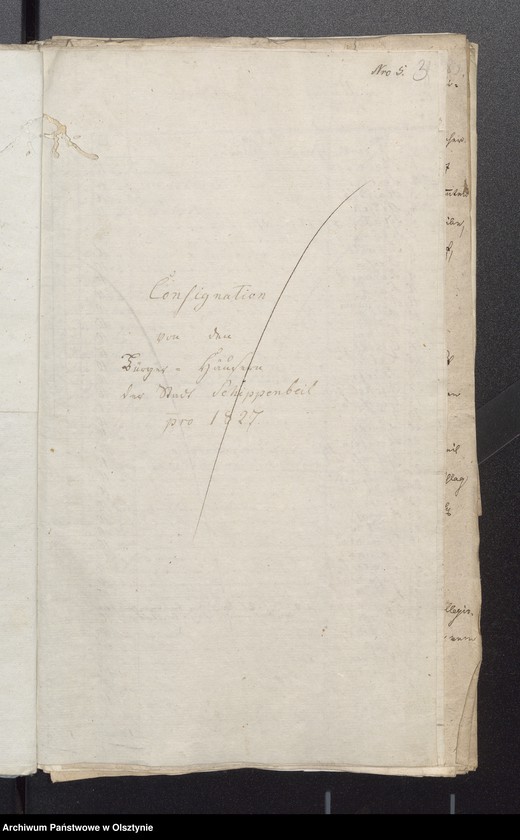 Nro 5. 3
Consignation
von den
Bürger - Häusern
der Stadt Schippenbeil
pro 1827
Archiwum Państwowe w Olsztynie